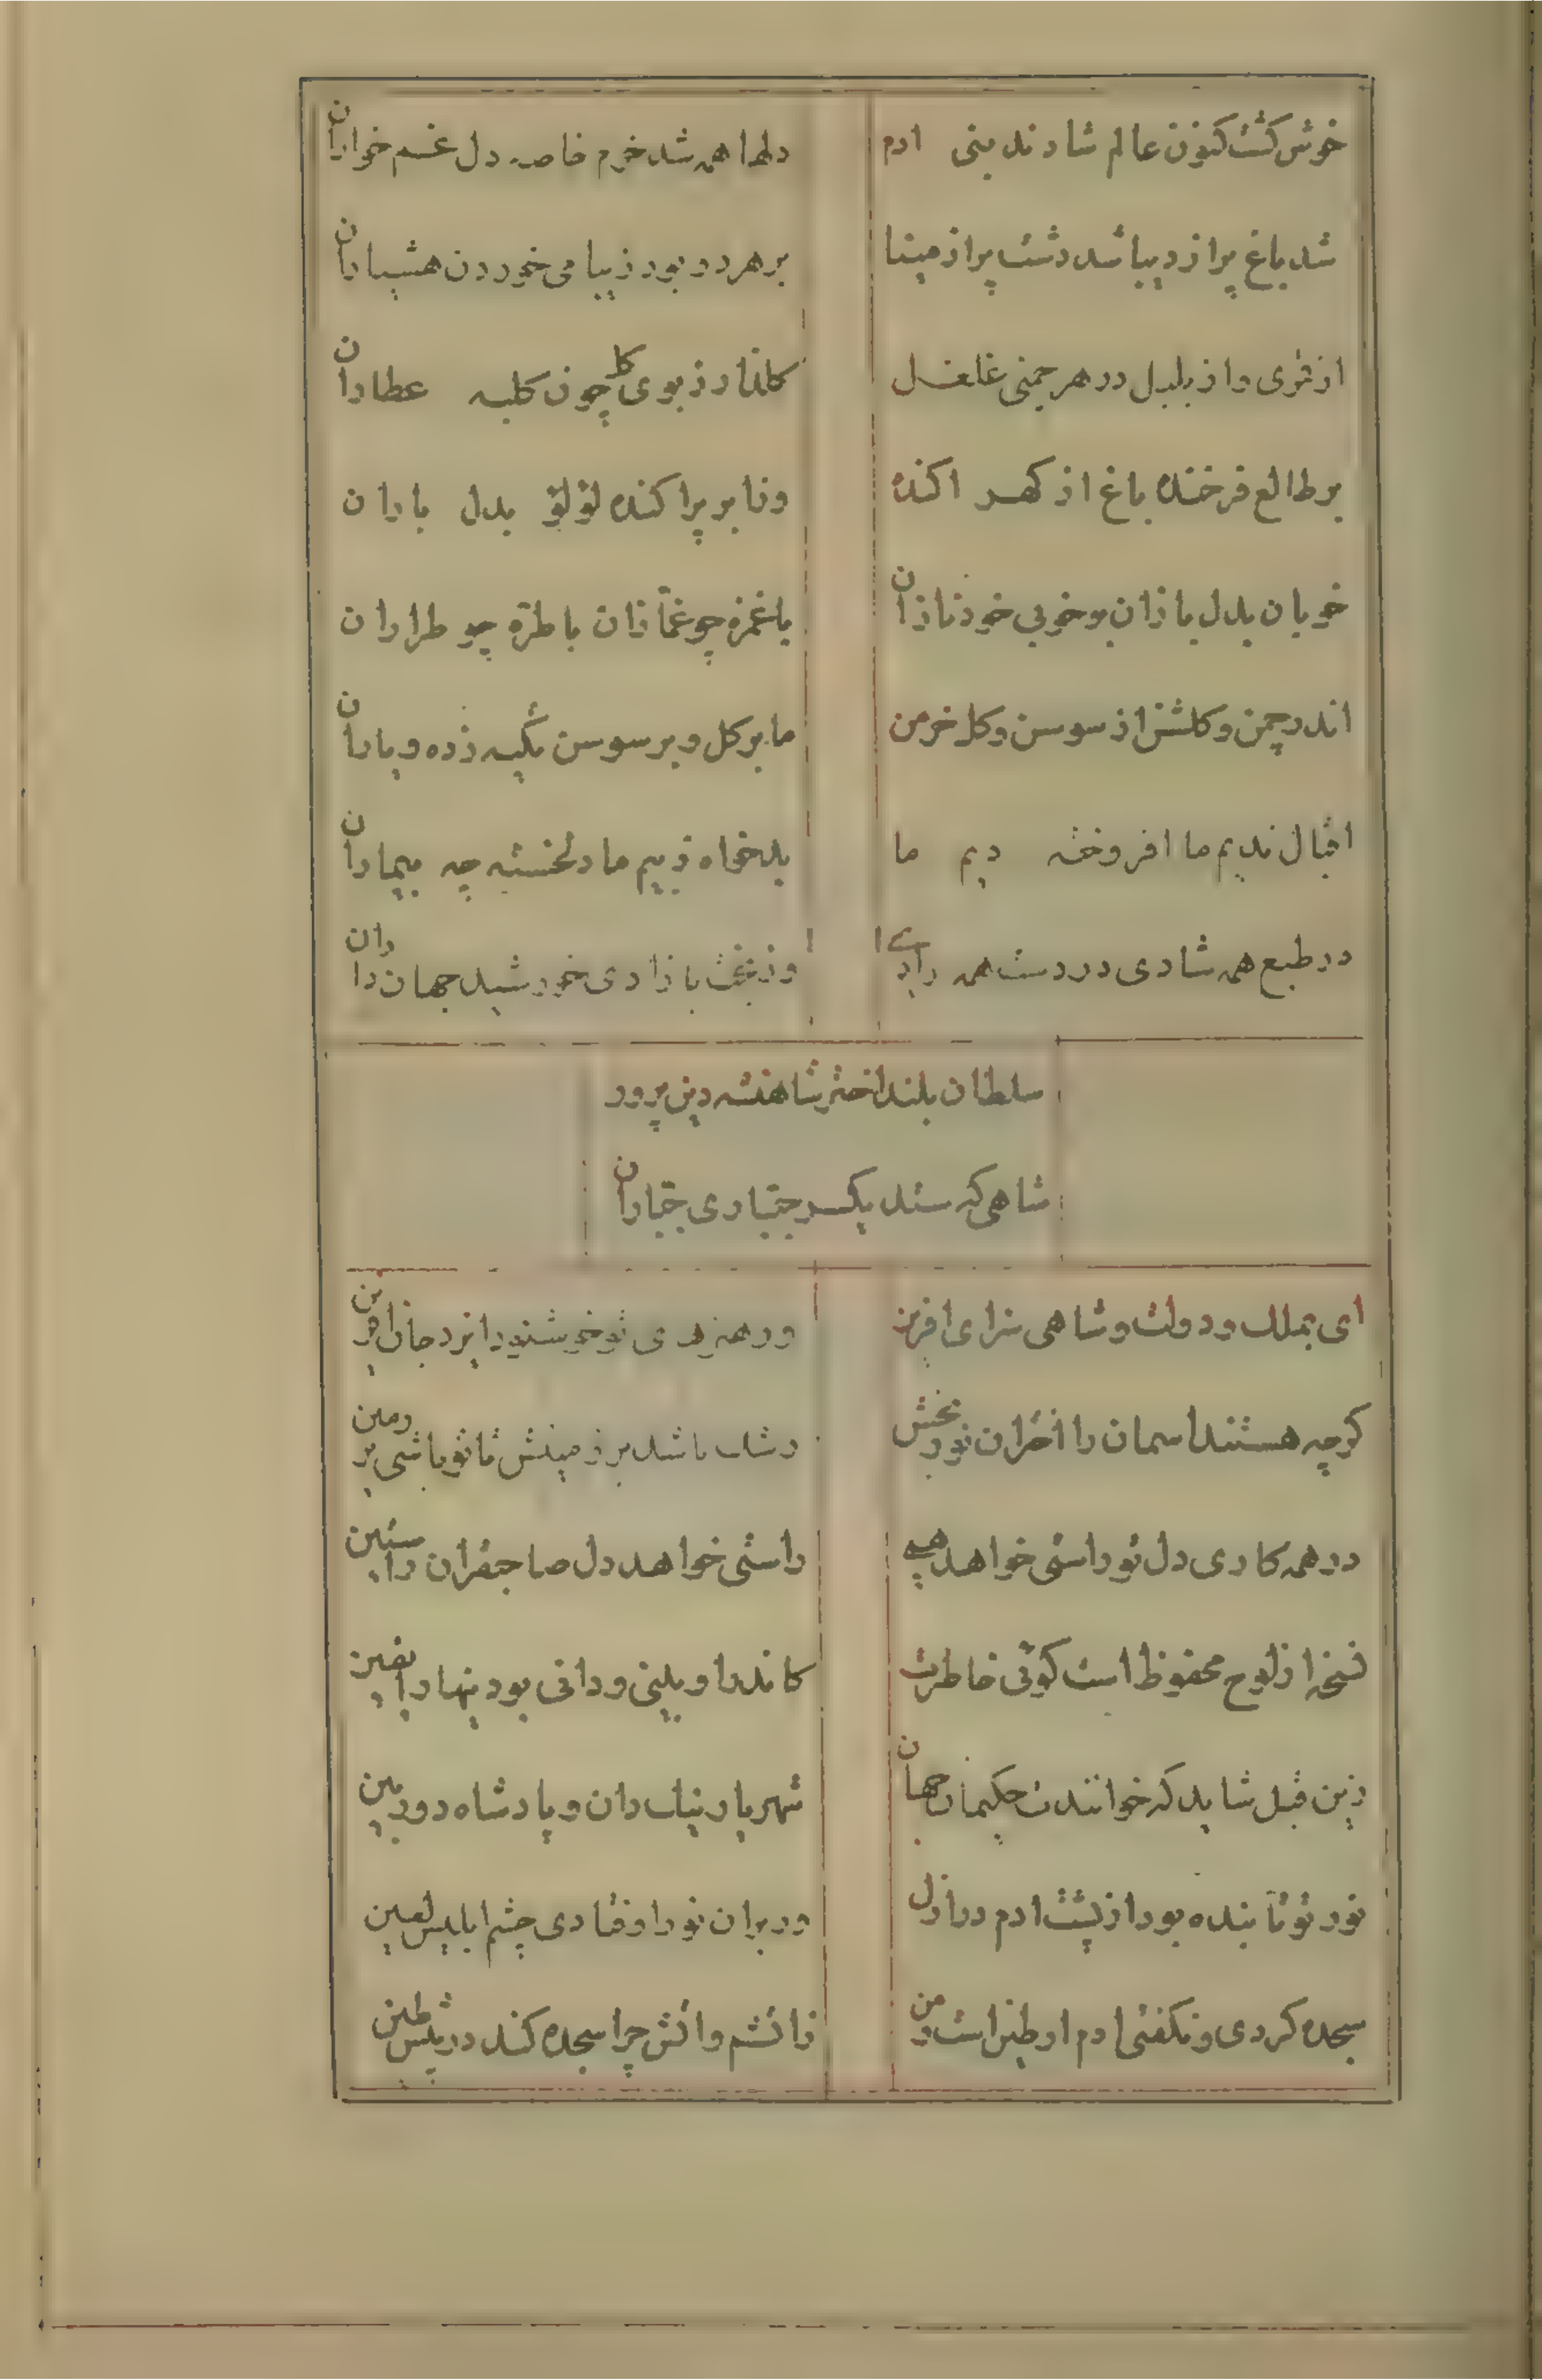 خوش کشت کنون عالم شادند بنی ادم
دلها همه شد خرم خاصه دل غم خواران
شد باغ پر از دیبا شد دشت پر از مینا
بر هر دو بود زیبا می خوردن هشیاران
از قمری و از بلبل در هر چمنی غلغل
کلنار ز بوی کل چون کلبه عطاران
بر طالع فرخنده باغ از کهر اکنده
وز ابر پراکنده لؤلؤ بدل باران
خوبان بدل بازان بر خوبی خود نازان
با غمزه چو غمّازان با طرّه چو طراران
اندر چمن و کلشن از سوسن و کل خرمن
ما بر کل و بر سوسن تکیه زده و یاران
اقبال ندیم ما افروخته دیم ما
بدخواه ز بیم ما دلخسته چه بیماران
در طبع همه شادی در دست همه رادی
وز بخت بازادی خورشید جهان داران
سلطان بلند اختر شاهنشه دین پرور
شاهی که ستد یکسر جبّاری جبّاران
ای بملک و دولت و شاهی سزای افرین
ور هنرهای تو خوشنود ایزد جان افرین
کرچه هستند اسمان را اختران نور بخش
رشک باشد بر زمینش تا تو باشی بر زمین
در همه کاری دل تو راستی خواهد همی
راستی خواهد دل صاحبقران راستین
نسخه از لوح محفوظ است کوئی خاطرت
کاندرا و بینی و دانی بودنیها را یقین
زین قبل شاید که خوانندت حکیمان جهان
شهریار نیک دان و پادشاه دوربین
نور تو تابنده بود از پشت ادم در ازل
ور بران نور اوفتادی چشم ابلیس لعین
سجده کردی و نکفتی ادم او طین است و من
زاتشم واتش چرا سجده کند در پیش طین